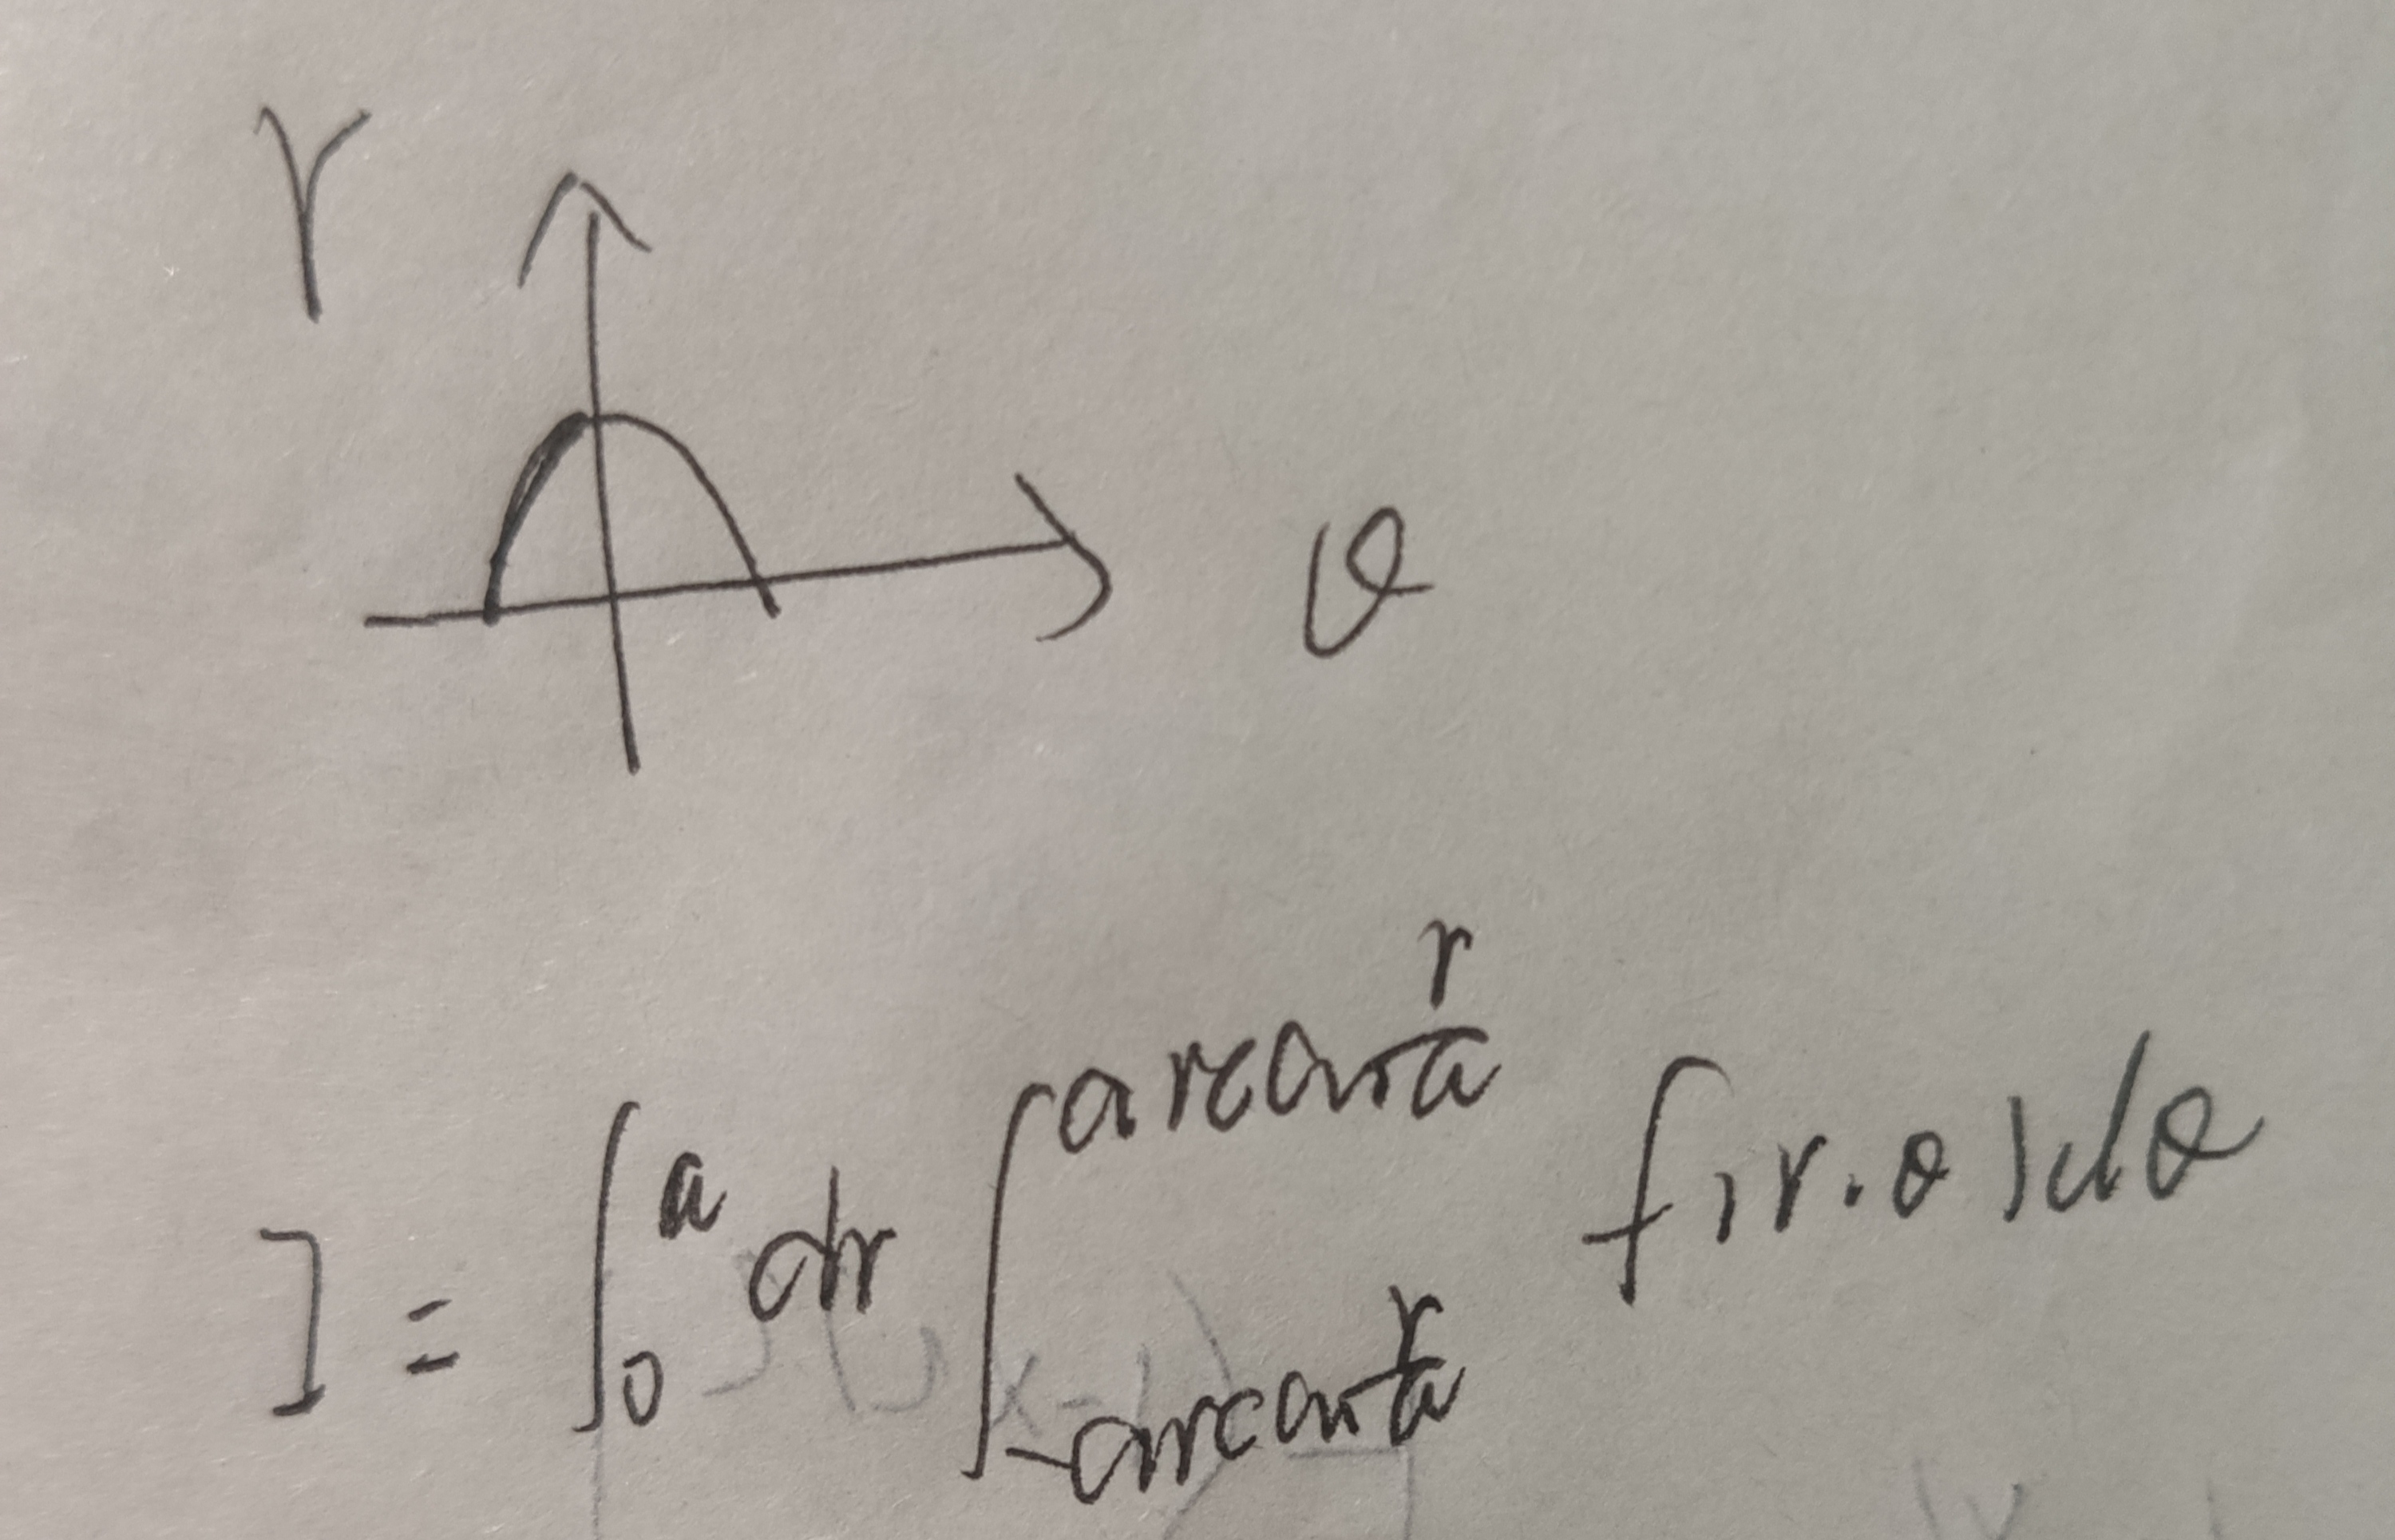 r
θ
I = ∫₀ᵃ dr ∫_{-arccos r/a}^{arccos r/a} f(r.θ)dθ